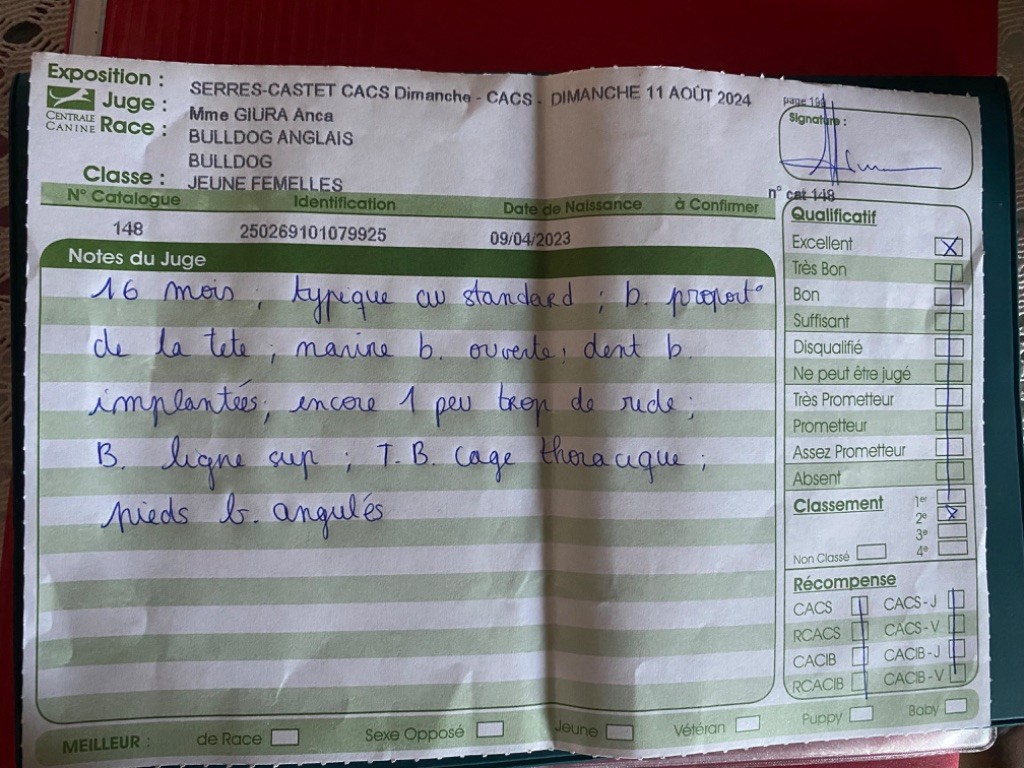 Exposition : SERRES-CASTET CACS Dimanche - CACS - DIMANCHE 11 AOÛT 2024
page 199
CENTRALE CANINE
Juge : Mme GIURA Anca
Race : BULLDOG ANGLAIS
BULLDOG
Classe : JEUNE FEMELLES
Signature :
n° cat 148
N° Catalogue Identification Date de Naissance à Confirmer
148 250269101079925 09/04/2023
Notes du Juge
16 mois ; typique au standard ; b. proport°
de la tete ; narine b. ouverte ; dent b.
implantées ; encore 1 peu trop de ride ;
B. ligne sup ; T. B. cage thoracique ;
pieds b. angulés
Qualificatif
Excellent X
Très Bon
Bon
Suffisant
Disqualifié
Ne peut être jugé
Très Prometteur
Prometteur
Assez Prometteur
Absent
Classement 1er
2e X
3e
Non Classé 4e
Récompense
CACS CACS-J
RCACS CACS-V
CACIB CACIB-J
RCACIB CACIB-V
MEILLEUR : de Race Sexe Opposé Jeune Vétéran Puppy Baby